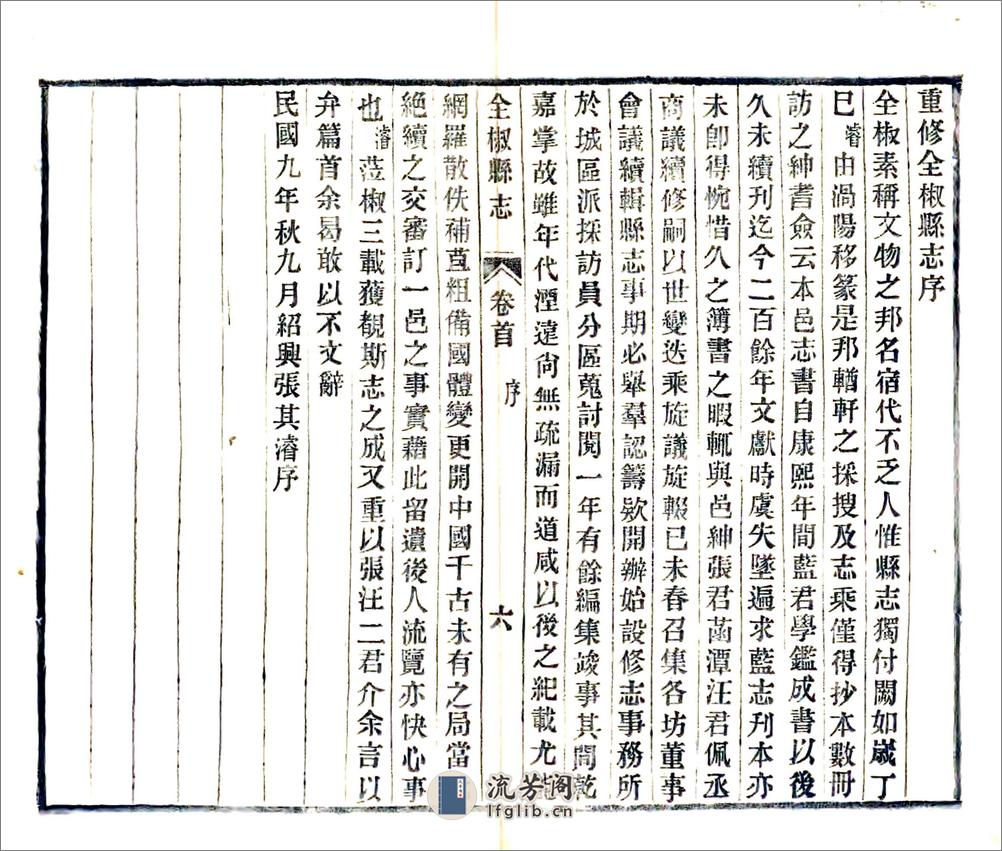 重修全椒縣志序
全椒素稱文物之邦名宿代不乏人惟縣志獨付闕如歲丁
巳濬由渦陽移篆是邦輶軒之採搜及志乘僅得抄本數冊
訪之紳耆僉云本邑志書自康熙年間藍君學鑑成書以後
久未續刊迄今二百餘年文獻時虞失墜遍求藍志刊本亦
未即得惋惜久之簿書之暇輒與邑紳張君菡潭汪君佩丞
商議續修嗣以世變迭乘旋議旋輟已未春召集各坊董事
會議續輯縣志事期必舉羣認籌欵開辦始設修志事務所
於城區派採訪員分區蒐討閱一年有餘編集竣事其間乾
嘉掌故雖年代湮遠尙無疏漏而道咸以後之紀載尤
全椒縣志 卷首 序 六
網羅散佚補苴粗備國體變更開中國千古未有之局當
絶續之交審訂一邑之事實藉此留遺後人流覽亦快心事
也濬蒞椒三載獲覩斯志之成又重以張汪二君介余言以
弁篇首余曷敢以不文辭
民國九年秋九月紹興張其濬序
流芳閣
lfglib.cn